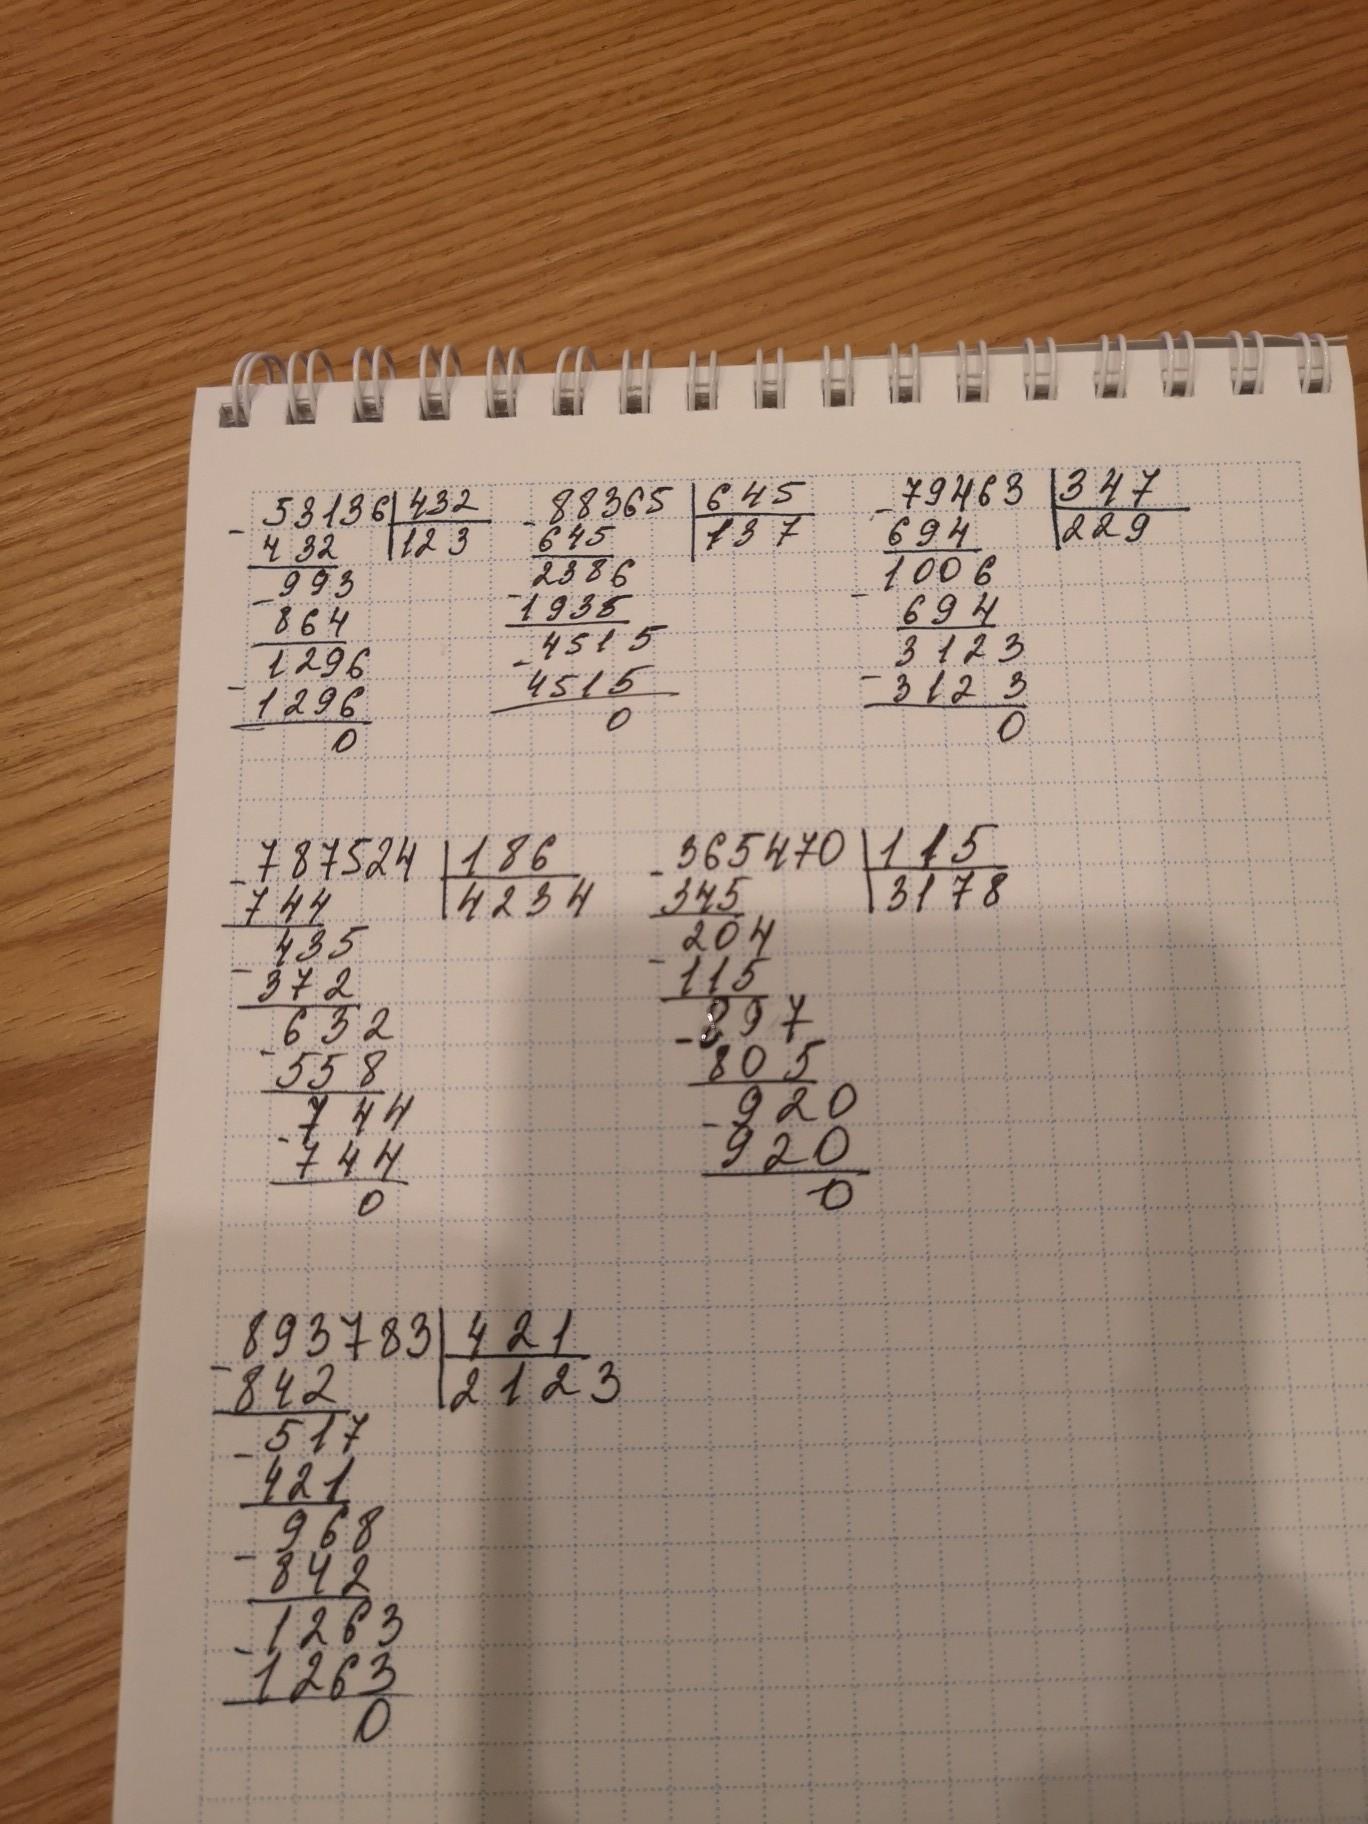 - 53136 | 432
432 | 123
- 993
864
- 1296
1296
0
- 88365 | 645
645 | 137
- 2386
1935
- 4515
4515
0
- 79463 | 347
694 | 229
- 1006
694
- 3123
3123
0
- 787524 | 186
744 | 4234
- 435
372
- 632
558
- 744
744
0
- 365470 | 115
345 | 3178
- 204
115
- 897
805
- 920
920
0
- 893783 | 421
842 | 2123
- 517
421
- 968
842
- 1263
1263
0